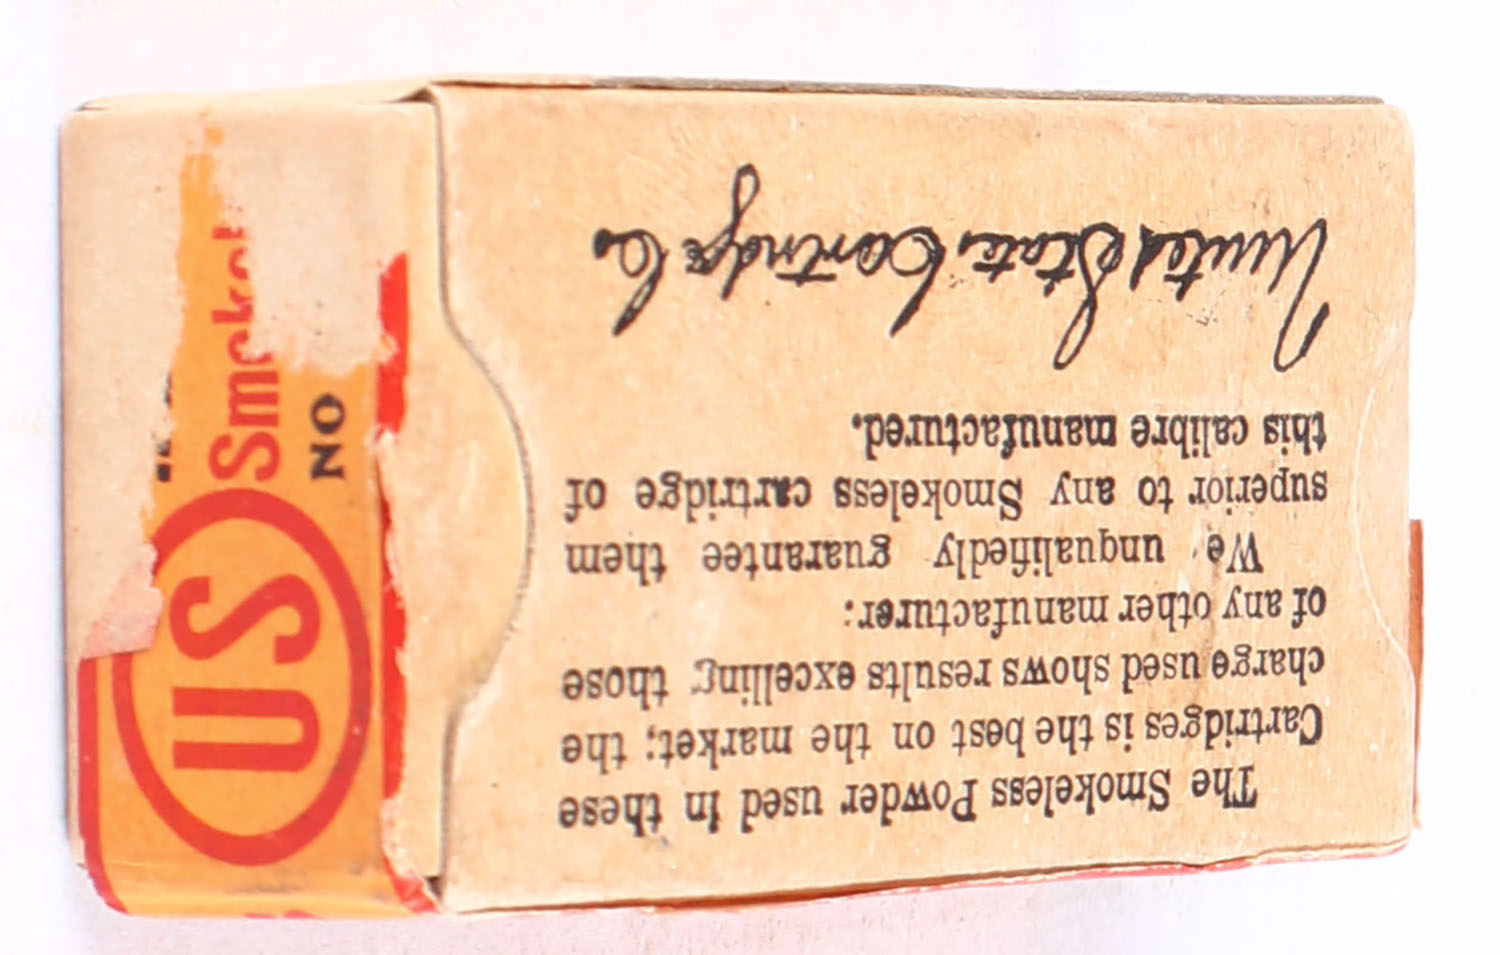 The Smokeless Powder used in these
Cartridges is the best on the market; the
charge used shows results excelling those
of any other manufacturer:
We unqualifiedly guarantee them
superior to any Smokeless cartridge of
this calibre manufactured.
United States Cartridge Co
US
NO